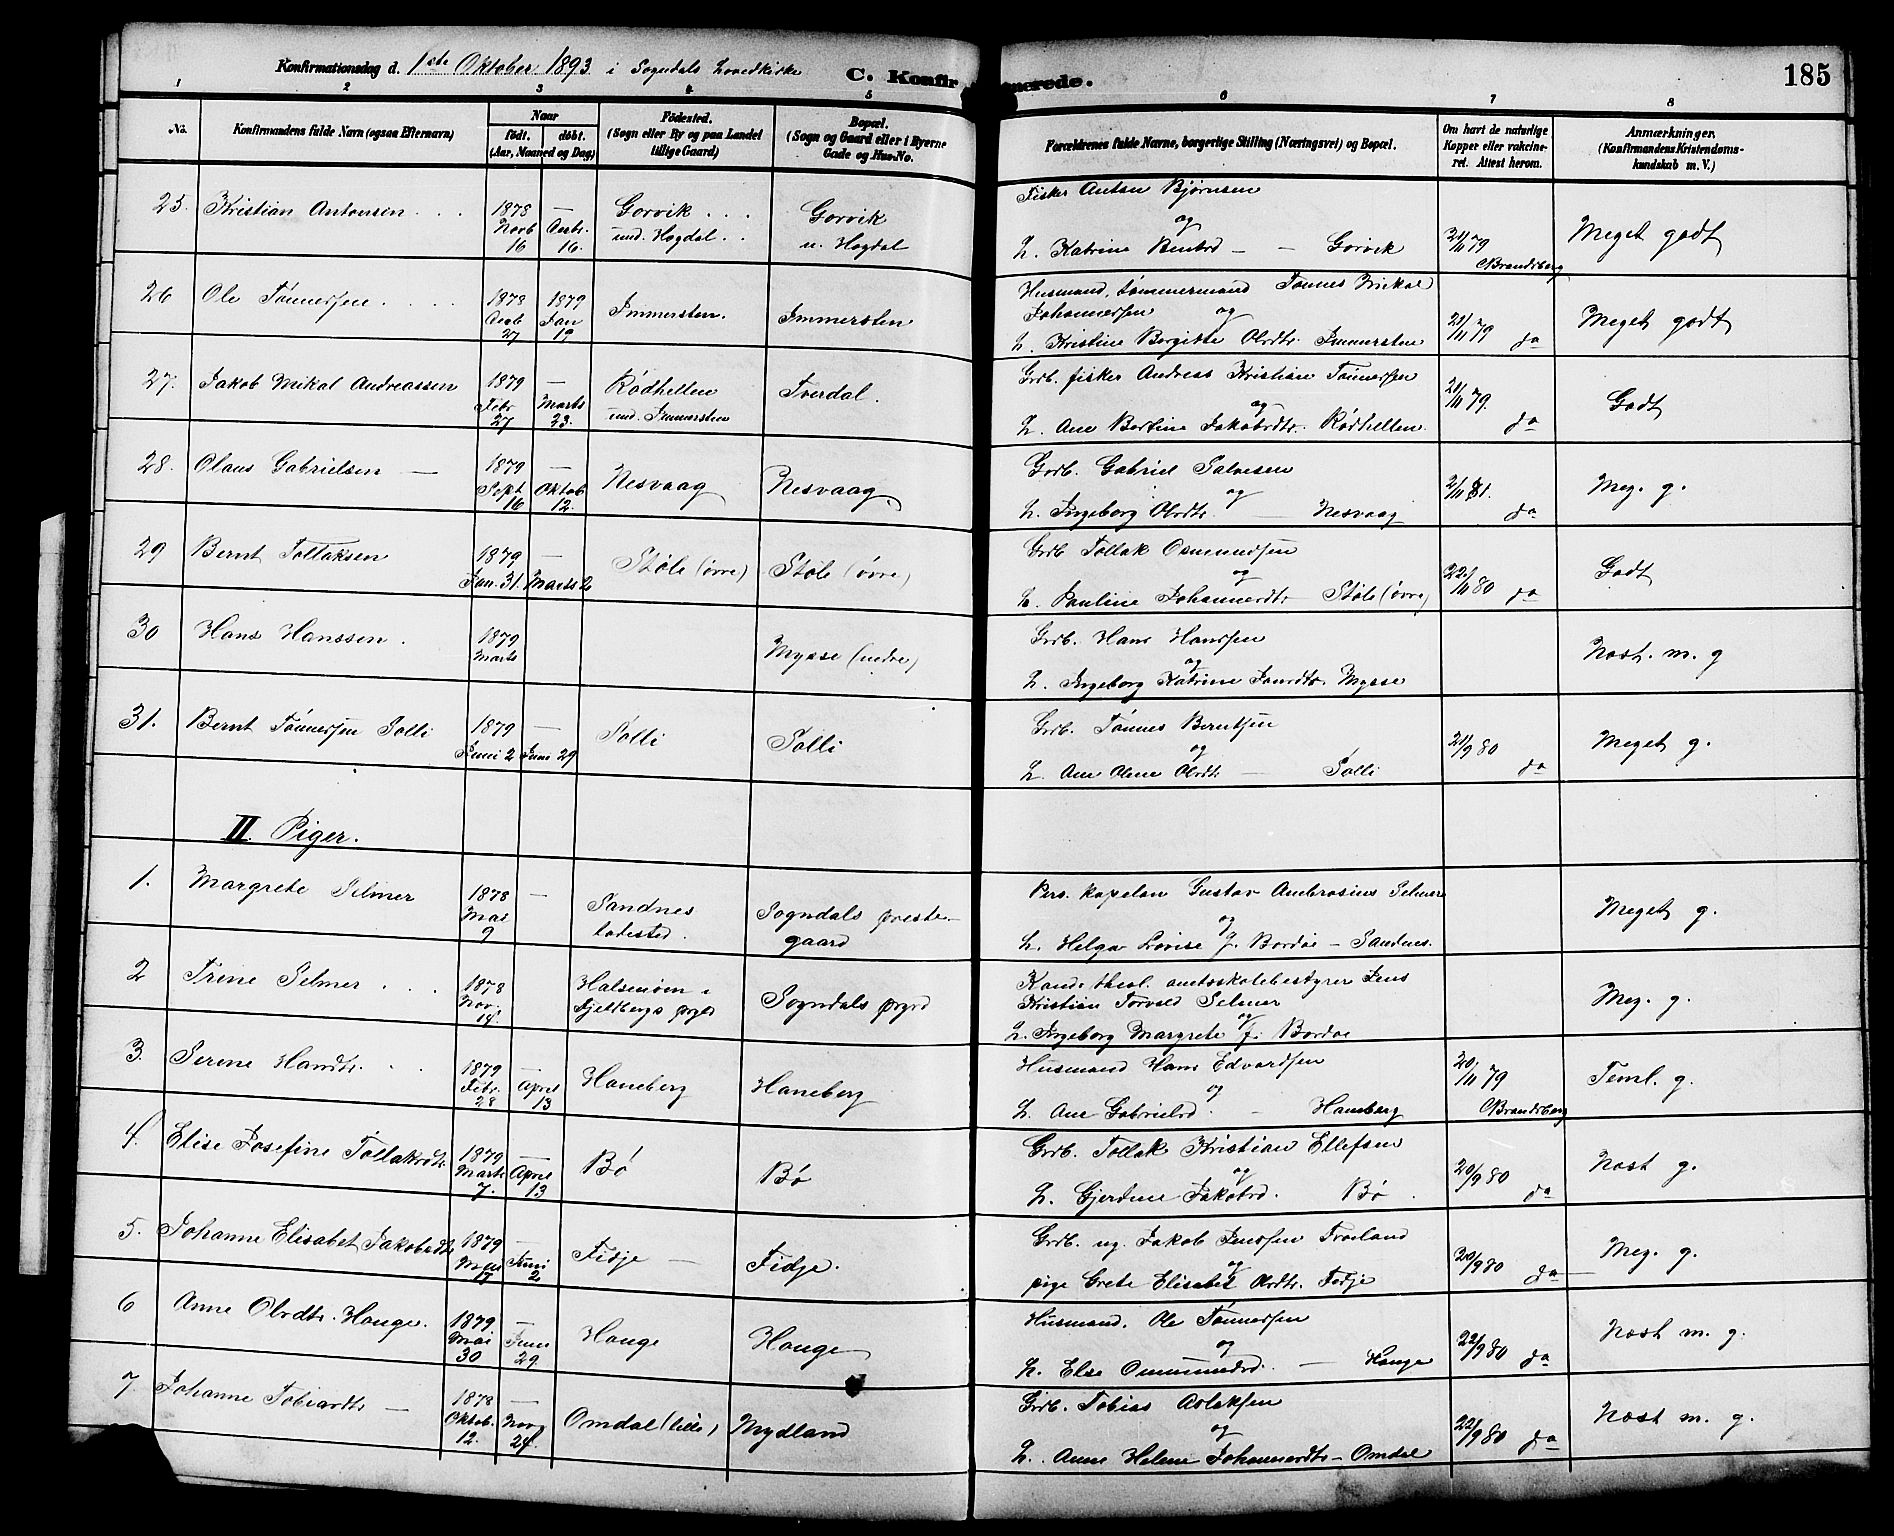 Konfirmationsdag d. 1ste Oktober 1893 i Sogndals hovedkirke C. Konfirmerede. 185
1 2 3 4 5 6 7 8
No. Konfirmandens fulde Navn (ogsaa Efternavn) Naar født. døbt. (Aar, Maaned og Dag) Fødested. (Sogn eller By og paa Landet tillige Gaard) Bopæl. (Sogn og Gaard eller i Byerne Gade og Hus-No. Forældrenes fulde Navne, borgerlige Stilling (Næringsvei) og Bopæl. Om havt de naturlige Kopper eller vakcineret. Attest herom. Anmærkninger. (Konfirmandens Kristendomskundskab m. V.)
25. Kristian Antonsen 1878 Novb 16 — Decbr. 16. Gorvik und. Hogdal Gorvik u. Hogdal
Fisker Anton Bjørnsen
og
h. Katrine Berntsd — — Gorvik 21/11 79 Brandsberg Meget godt
26 Ole Tønnessen 1878 Decb 27 1879 Jan 19 Immersten. Immersten
Husmand, tømmermand Tønnes Mikal
Johannessen og
h. Kristine Bergitte Olsdtr. Immersten 21/11 79 do Meget godt
27. Jakob Mikal Andreassen 1879 Febr 27 — Marts 23. Rødhellen und. Immersten Tverdal.
Grdb. fisker Andreas Kristian Tønnessen
og
h. Ane Bertine Jakobsdtr. Rødhellen. 21/11 79. do Godt
28. Olaus Gabrielsen — 1879 Sept 16 — Oktob 12. Nesvaag Nesvaag
Gardb. Gabriel Salvesen
og
h. Ingeborg Olsdtr. — Nesvaag 2/11 81. do Meg. g.
29 Bernt Tollaksen 1879 Jan. 31. — Marts 2 Støle (øvre) Støle (øvre)
Grdb Tollak Osmundsen
og
h. Pauline Johannesdtr Støle (øvre) 22/11 80 do Godt
30 Hans Hanssen. 1879 Marts Mysse (nedre)
Grdb. Hans Hanssen
og
h. Ingeborg Katrine Jansdtr. Mysse Nost. m. g
31. Bernt Tønnessen Solli 1879 Juni 2 — Juni 29 Solli Solli
Grdb. Tønnes Berntsen
og
h. Ane Olene Olsdtr — Solli 21/9 80 do Meget g.
II. Piger.
1. Margrete Selmer 1878 Mai 9 — Sandnes ladested. Sogndals prestegaard
Pers. kapelan Gustav Ambrosius Selmer
og
h. Helga Lovise f. Bordoe — Sandnes. Meget g.
2 Trine Selmer 1878 Nov. 14. Halsenøen i Fjeldbergs prgld Sogndals prgrd
Kand. theol. amtsskolebestyrer Jens
Kristian Torvald Selmer
og
h. Ingeborg Margrete f. Bordoe Meg. g.
3. Serine Hansdtr. 1879 Febr. 28 — April 13 Haneberg Haneberg
Husmand Hans Edvardsen
og
h. Ane Gabrielsd. — Haneberg 20/11 79 Brandsberg Teml. g.
4. Elise Josefine Tollaksdtr 1879 Marts 7. — April 13 Bø Bø
Grdb. Tollak Kristian Ellefsen
og
h. Gjerdine Jakobsd. Bø. 20/9 80 do Nost g.
5. Johanne Elisabet Jakobsdtr 1879 Mai 17 — Juni 2 Fidje — Fidje.
Grdb. ug. Jakob Jenssen Frøland
og
pige Grete Elisabet Olsdtr. Fidje 20/9 80 do — Meg. g.
6 Anne Olsdtr. Hauge. 1879 Mai 30 — Juni 29. Hauge Hauge
Husmand. Ole Tønnessen
og
h. Else Ommundsd. — Hauge 22/9 80 do Nost m. g.
7. Johanne Tobiasdtr — 1878 Oktob. 12. — Nov 24. Omdal (lille) Mydland
Grdb. Tobias Aslaksen
og
h. Anne Helene Johannesdtr — Omdal 22/9 80 do Nost m. g.